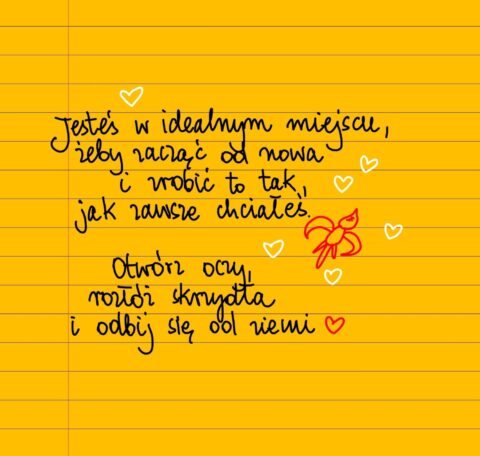 Jesteś w idealnym miejscu,
żeby zacząć od nowa
i zrobić to tak,
jak zawsze chciałeś.
Otwórz oczy,
rozłóż skrzydła
i odbij się od ziemi